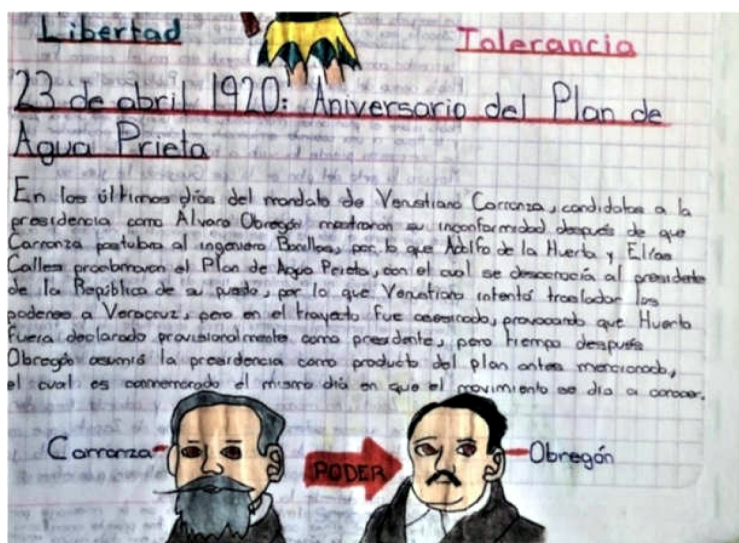 Libertad
Tolerancia
23 de abril 1920: Aniversario del Plan de
Agua Prieta
En los últimos días del mandato de Venustiano Carranza, candidatos a la
presidencia como Álvaro Obregón mostraron su inconformidad después de que
Carranza postulara al ingeniero Bonillas, por lo que Adolfo de la Huerta y Elías
Calles proclamaron el Plan de Agua Prieta, con el cual se desconocía al presidente
de la República de su puesto, por lo que Venustiano intentó trasladar los
poderes a Veracruz, pero en el trayecto fue asesinado, provocando que Huerta
fuera declarado provisionalmente como presidente, pero tiempo después
Obregón asumió la presidencia como producto del plan antes mencionado,
el cual es conmemorado el mismo día en que el movimiento se dio a conocer.
Carranza
PODER
Obregón